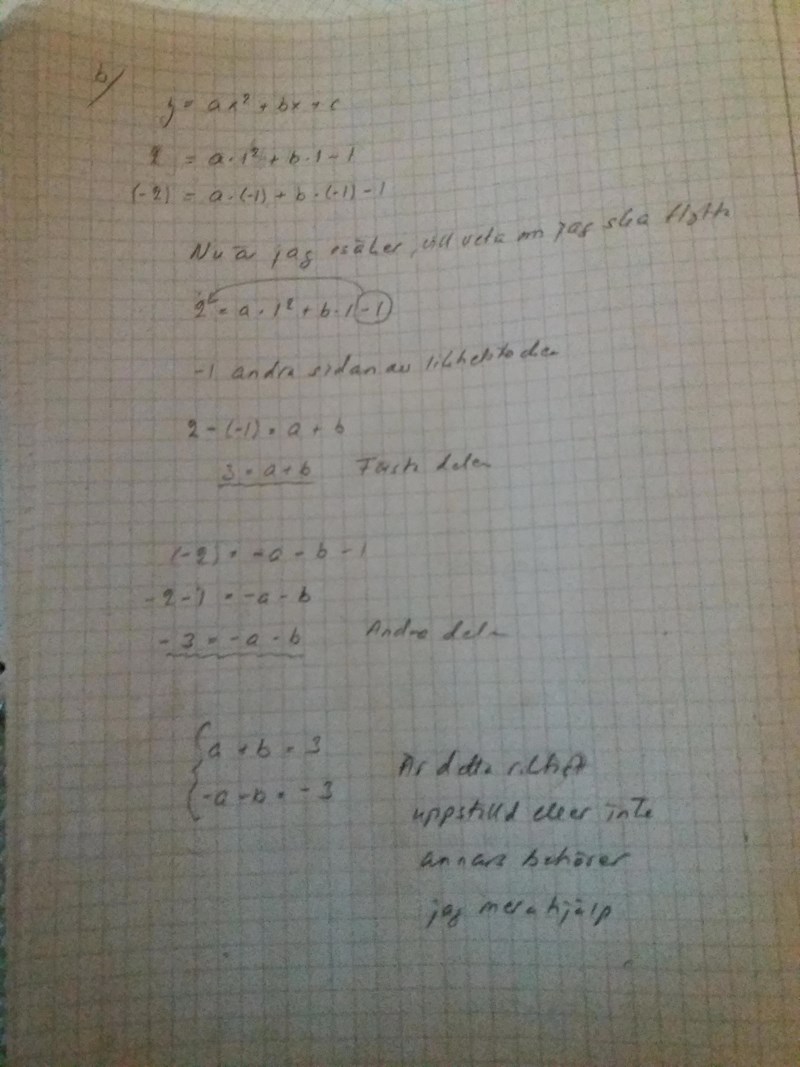 b/
y = ax² + bx + c
2 = a·1² + b·1-1
(-2) = a·(-1) + b·(-1)-1
Nu är jag osäker, vill veta om jag ska flytta
2 = a·1² + b·1-1
-1 andra sidan av likhetstecken
2-(-1) = a + b
3 = a+b Första delen
(-2) = -a - b - 1
-2-1 = -a - b
-3 = -a - b Andra delen
a + b = 3
-a - b = -3
Är detta riktigt
uppställd eller inte
annars behöver
jag mera hjälp